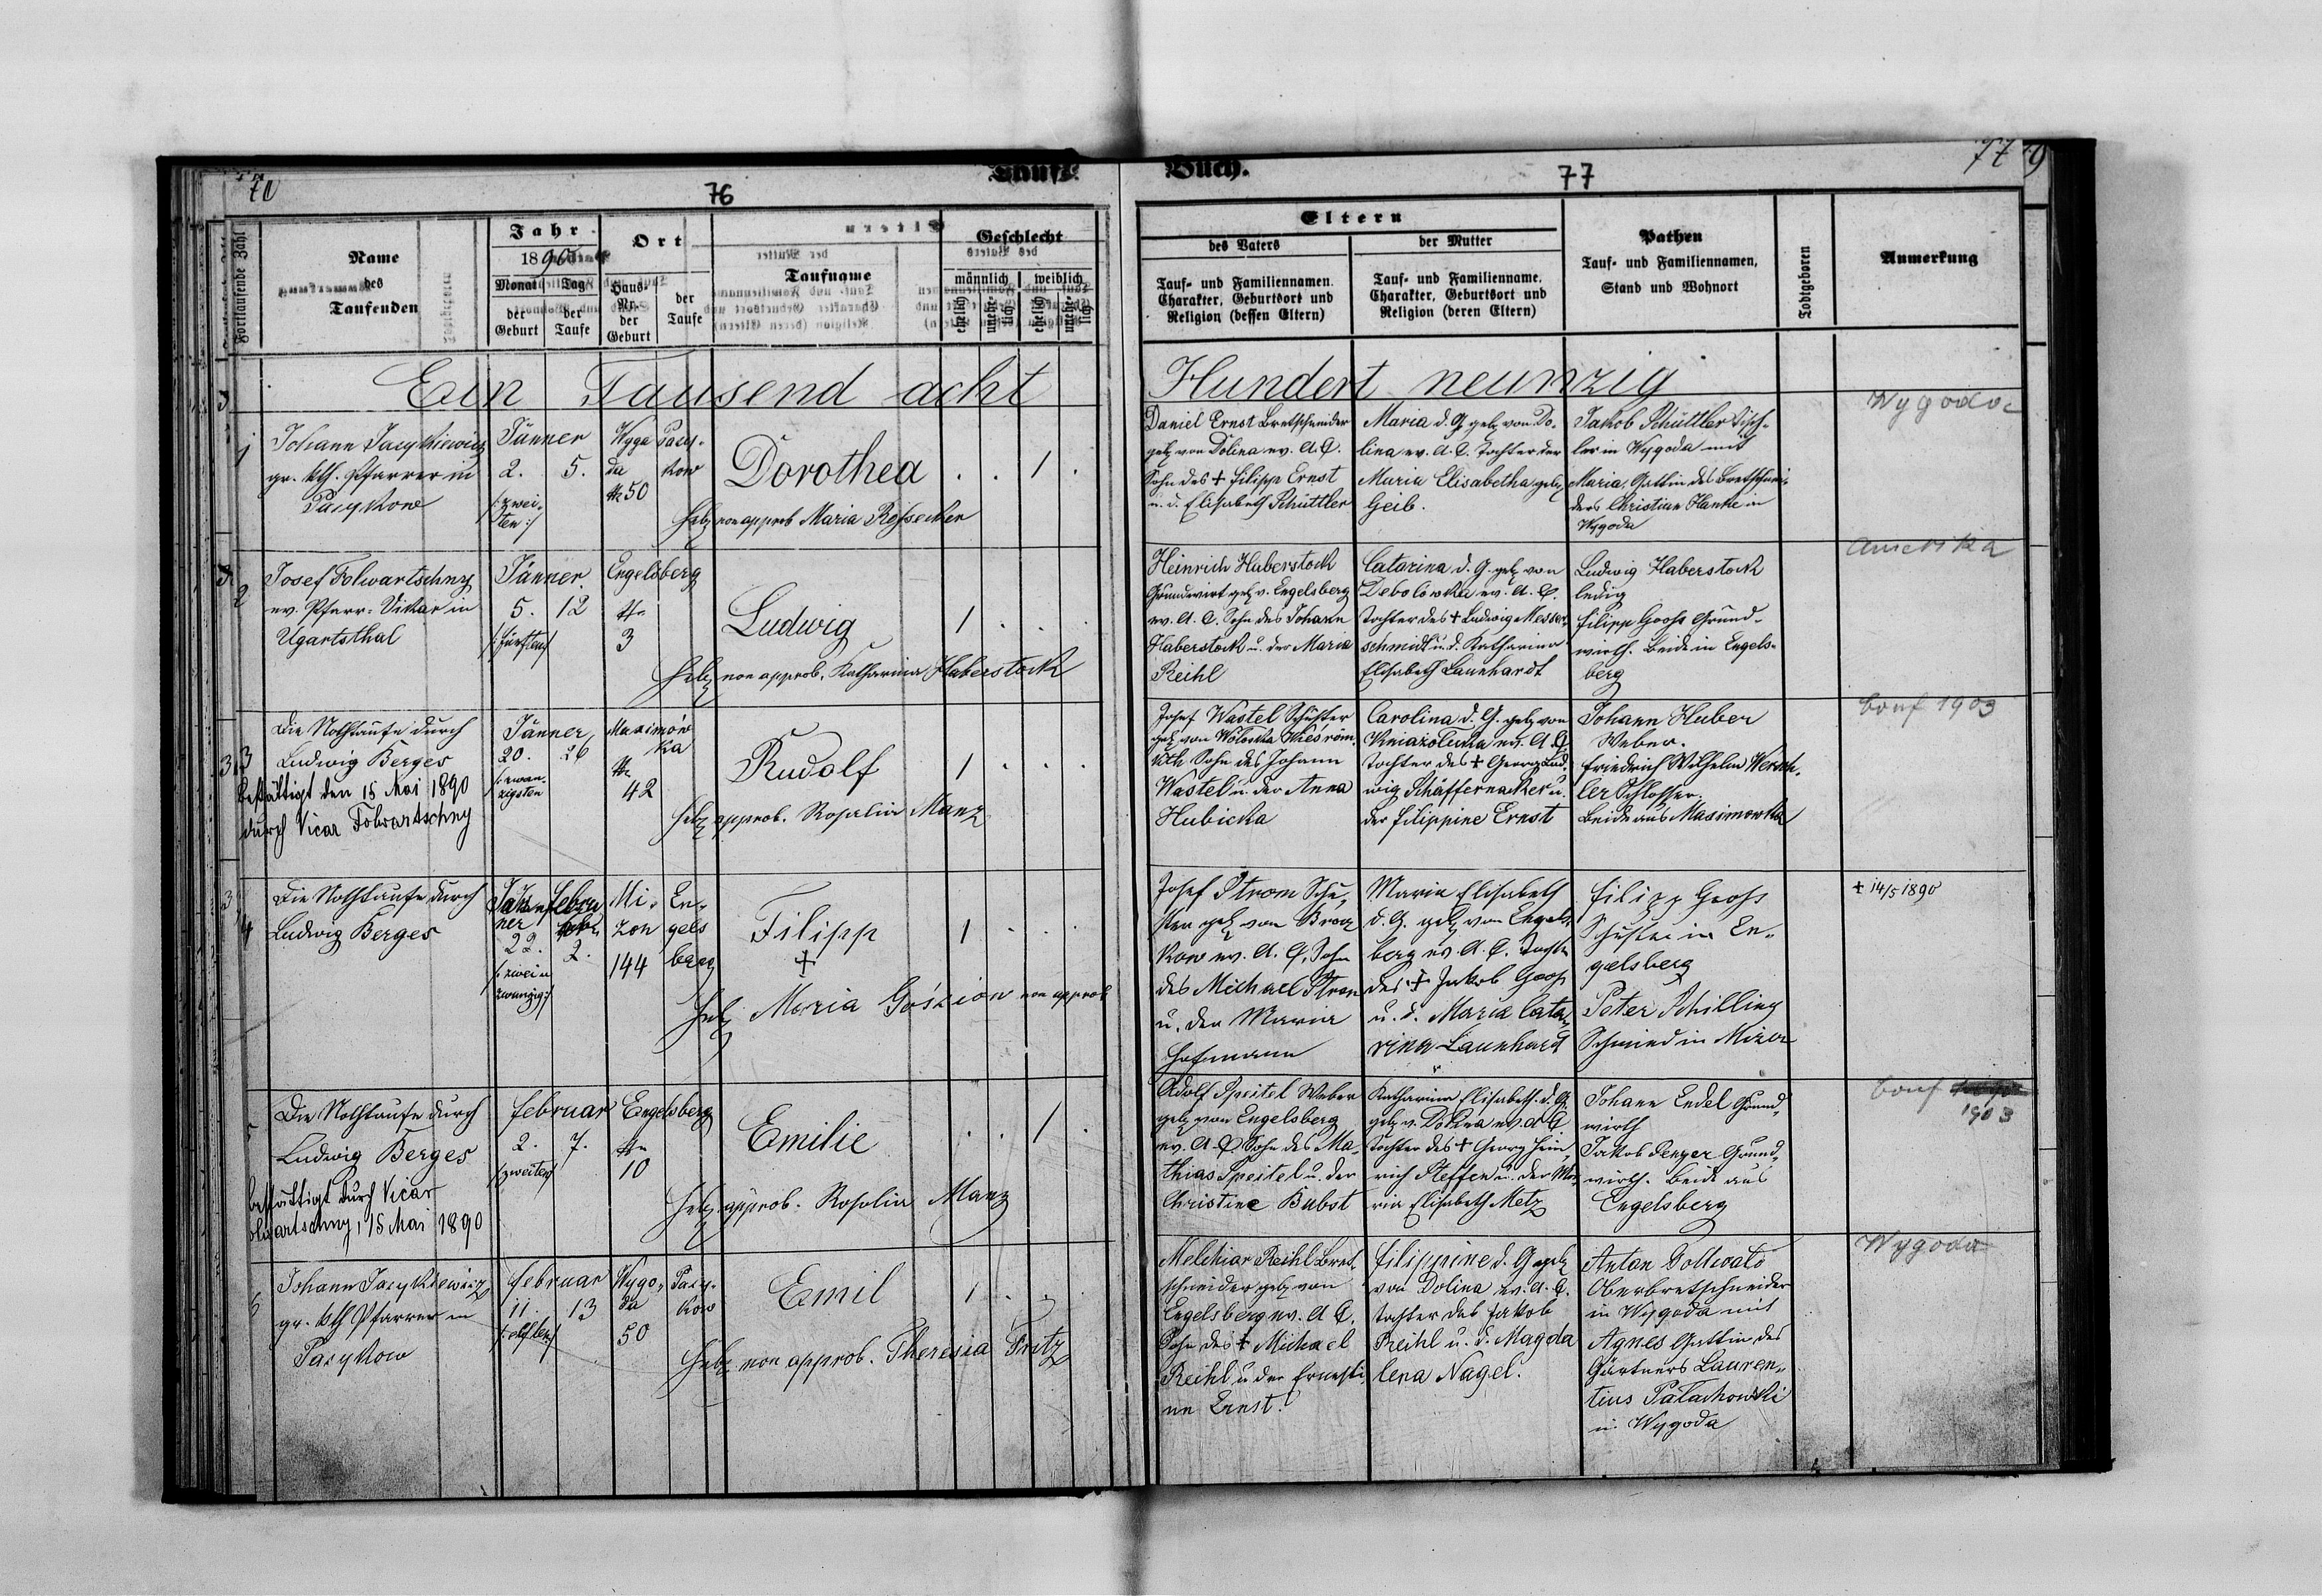 76
Tauf-
Buch.
77
77
Fortlaufende Zahl
Name
des
Taufenden
Jahr
1890
Monat Tag
der Geburt
der Taufe
Ort
Haus-Nr. der Geburt
der Taufe
Taufname
Geschlecht
männlich weiblich
ehelich
unehelich
ehelich
unehelich
Eltern
des Vaters
Tauf- und Familiennamen.
Charakter, Geburtsort und
Religion (dessen Eltern)
der Mutter
Tauf- und Familienname.
Charakter, Geburtsort und
Religion (deren Eltern)
Pathen
Tauf- und Familiennamen,
Stand und Wohnort
Todtgeboren
Anmerkung
Ein Tausend acht
Hundert neunzig
1
Johann
gr. kth. Pfarrer in
Pacykow
Jänner
2. 5.
/:zwei-
ten:/
Wygo
da
№ 50
Pacy-
kow
Dorothea
1
Heb non approb Maria
Daniel Ernst Bretschneider
geb von Dolina ev. A.C.
Sohn des + Filipp Ernst
u. d. Elisabeth Schüttler
Maria d. G. geb von Do-
lina ev. A.C. Tochter der
Maria Elisabetha geb
Geib.
Jakob Schüttler Tisch-
ler in Wygoda mit
Maria, Gattin des Bretschnei-
ders Christian Hanke in
Wygoda
Wygoda
2
Josef Folwartschny
ev. Pfarr-Vikar in
Ugartsthal
Jänner
5. 12
/:fünften/
Engelsberg
№
3
Ludwig
1
Heb non approb. Katharina Haberstock
Heinrich Haberstock
Grundwirt geb v. Engelsberg
ev. A. C. Sohn des Johann
Haberstock u. der Maria
Reihl
Catarina d. G. geb von
Debolówka ev. A. C.
Tochter des + Ludwig Messer-
schmidt u. d. Katharina
Elisabeth Launhardt
Ludwig Haberstock
ledig
Filipp Gross Grund-
wirth. Beide in Engels-
berg
Amerika
3
Die Nothtaufe durch
Ludwig Berges
bestättigt den 15 Mai 1890
durch Vicar Folwartschny
Jänner
20. 26
/:zwan-
zigsten
Maximów
ka
№
42
Rudolf
1
Heb approb. Rosalia Manz
Josef Wastel Schuster
geb von Woloska Wies röm.
kth Sohn des Johann
Wastel u. der Anna
Hubicka
Carolina d. G. geb von
Kniazoluka ev. A C
Tochter des + Georg Lud-
wig Schäffernacker u.
der Filippine Ernst
Johann Huber
Weber.
Friedrich Wilhelm
ler Schlosser.
Beide aus Maximowka
Conf 1903
4
Die Nothtaufe durch
Ludwig Berges
Jän
ner
22.
/:zwei u
zwanzig:/
Febru
2.
Mi-
zon
144
En-
gels
berg
Filipp
+
1
Heb Maria Góśzion non approb
Josef Strom Schu-
ster geb von Brocz
kow ev. A. C. Sohn
des Michael Strom
u. der Maria
Hofmann
Maria Elisabeth
d. G. geb von Engels-
berg ev. A. C. Tochter
des + Jakob Gross
u. d. Maria Cata-
rina Launhard
Filipp Gross
Schuster in En-
gelsberg
Peter Schilling
Schmied in Mizon
+ 14/5 1890
5
Die Nothtaufe durch
Ludwig Berges
bestättigt durch Vicar
olwartschny, 15 Mai 1890
Februar
2. 7.
/:zweiten/
Engelsberg
№
10
Emilie
1
Heb. approb. Rosalia Manz
Adolf Speitel Weber
geb von Engelsberg
ev. A. C. Sohn des Ma-
thias Speitel u. der
Christine Babst
Katharina Elisabeth d. G.
geb v. Dolina ev. A C
Tochter des + Georg Hein-
rich Steffen u. der Ma-
ria Elisabeth Metz
Johann Endel Grund-
wirth
Jakob Penzer Grund-
wirth. Beide aus
Engelsberg
Conf
1903
6
Johann
gr. kth Pfarrer in
Pacykow
Februar
11. 13
/:elften/
Wygo-
da
50
Pacy-
kow
Emil
1
Heb non approb. Theresia Fritz
Melchior Reihl Bret-
schneider geb von
Engelsberg ev. A C.
Sohn des + Michael
Reihl u der Ernesti-
ne Ernst.
Filippine d. G geb
von Dolina ev. A. C.
Tochter des Jakob
Reihl u. d. Magda
lena Nagel.
Anton Gottwald
Oberbretschneider
in Wygoda mit
Agnes Gattin des
Gärtners Lauren-
tius Palachowski
in Wygoda
Wygoda